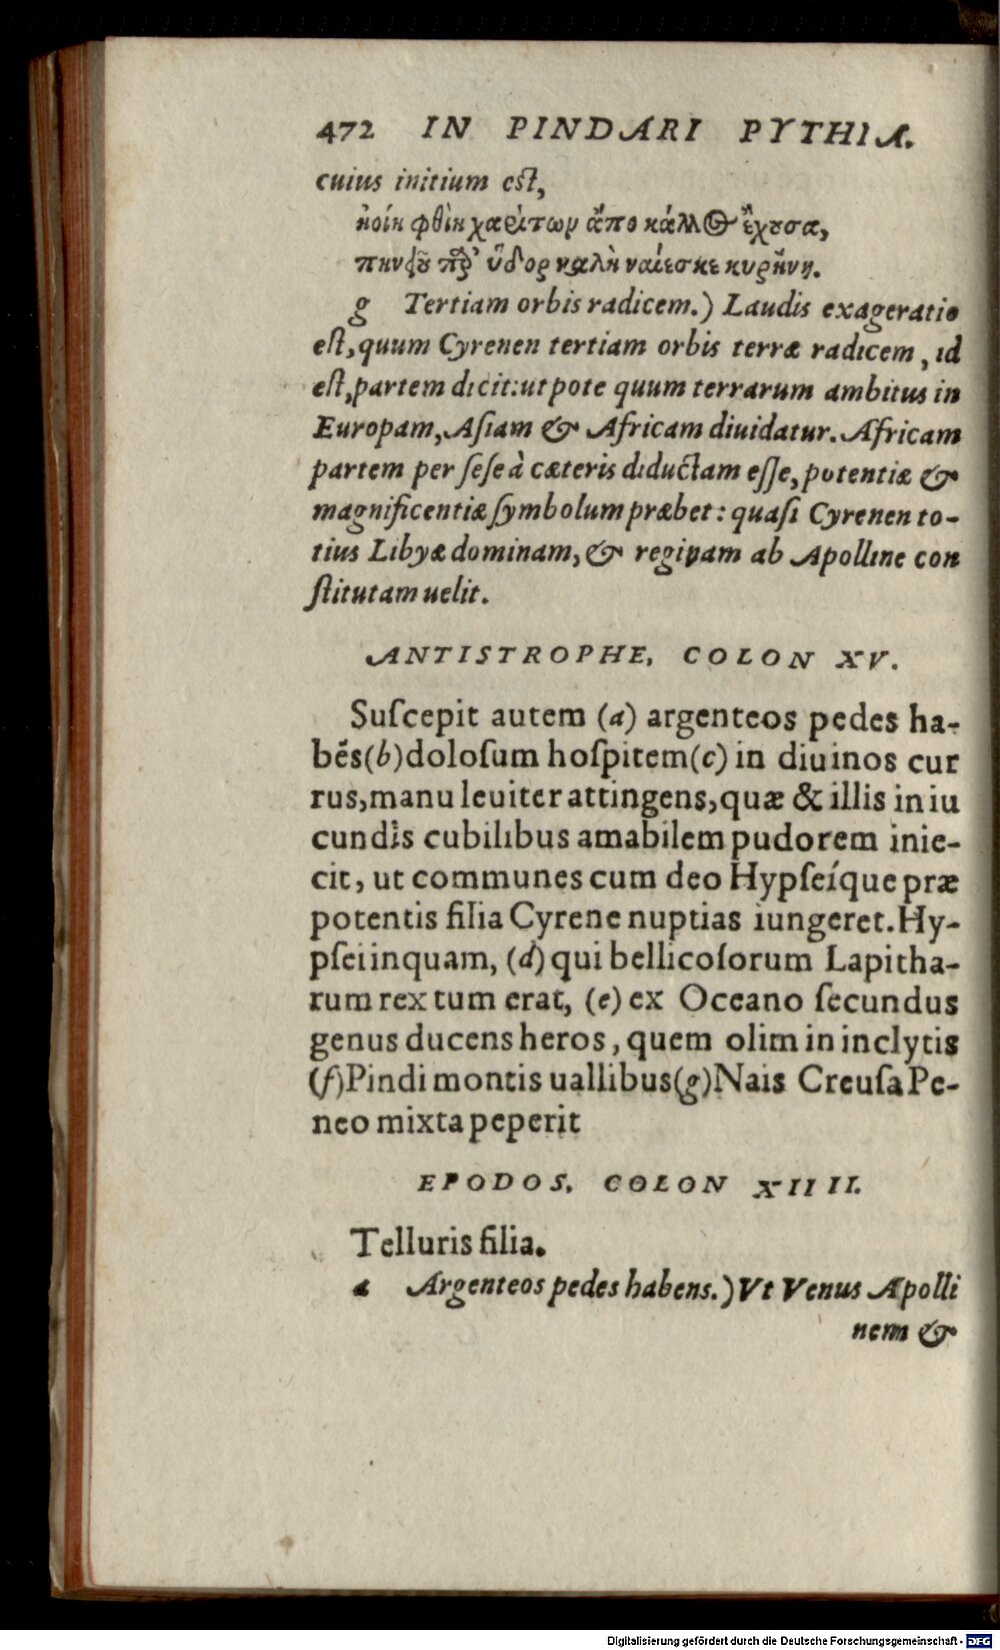 472 IN PINDARI PYTHIA.
cuius initium est,
ἠοίη φθίη χαρίτων ἄπο κάλλος ἔχουσα,
πηνειοῦ παρ' ὕδορ καλὴ ναίεσκε κυρήνη.
g Tertiam orbis radicem.) Laudis exageratio
est, quum Cyrenen tertiam orbis terræ radicem, id
est, partem dicit: utpote quum terrarum ambitus in
Europam, Asiam & Africam diuidatur. Africam
partem per sese à cæteris diductam esse, potentiæ &
magnificentiæ symbolum præbet: quasi Cyrenen to-
tius Libyæ dominam, & reginam ab Apolline con
stitutam uelit.
ANTISTROPHE, COLON XV.
Suscepit autem (a) argenteos pedes ha-
bẽs (b) dolosum hospitem (c) in diuinos cur
rus, manu leuiter attingens, quæ & illis in iu
cundis cubilibus amabilem pudorem inie-
cit, ut communes cum deo Hypseíque præ
potentis filia Cyrene nuptias iungeret. Hy-
psei inquam, (d) qui bellicosorum Lapitha-
rum rex tum erat, (e) ex Oceano secundus
genus ducens heros, quem olim in inclytis
(f) Pindi montis uallibus (g) Nais Creusa Pe-
neo mixta peperit
EPODOS, COLON XIIII.
Telluris filia.
a Argenteos pedes habens.) Vt Venus Apolli
nem &
Digitalisierung gefördert durch die Deutsche Forschungsgemeinschaft - DFG